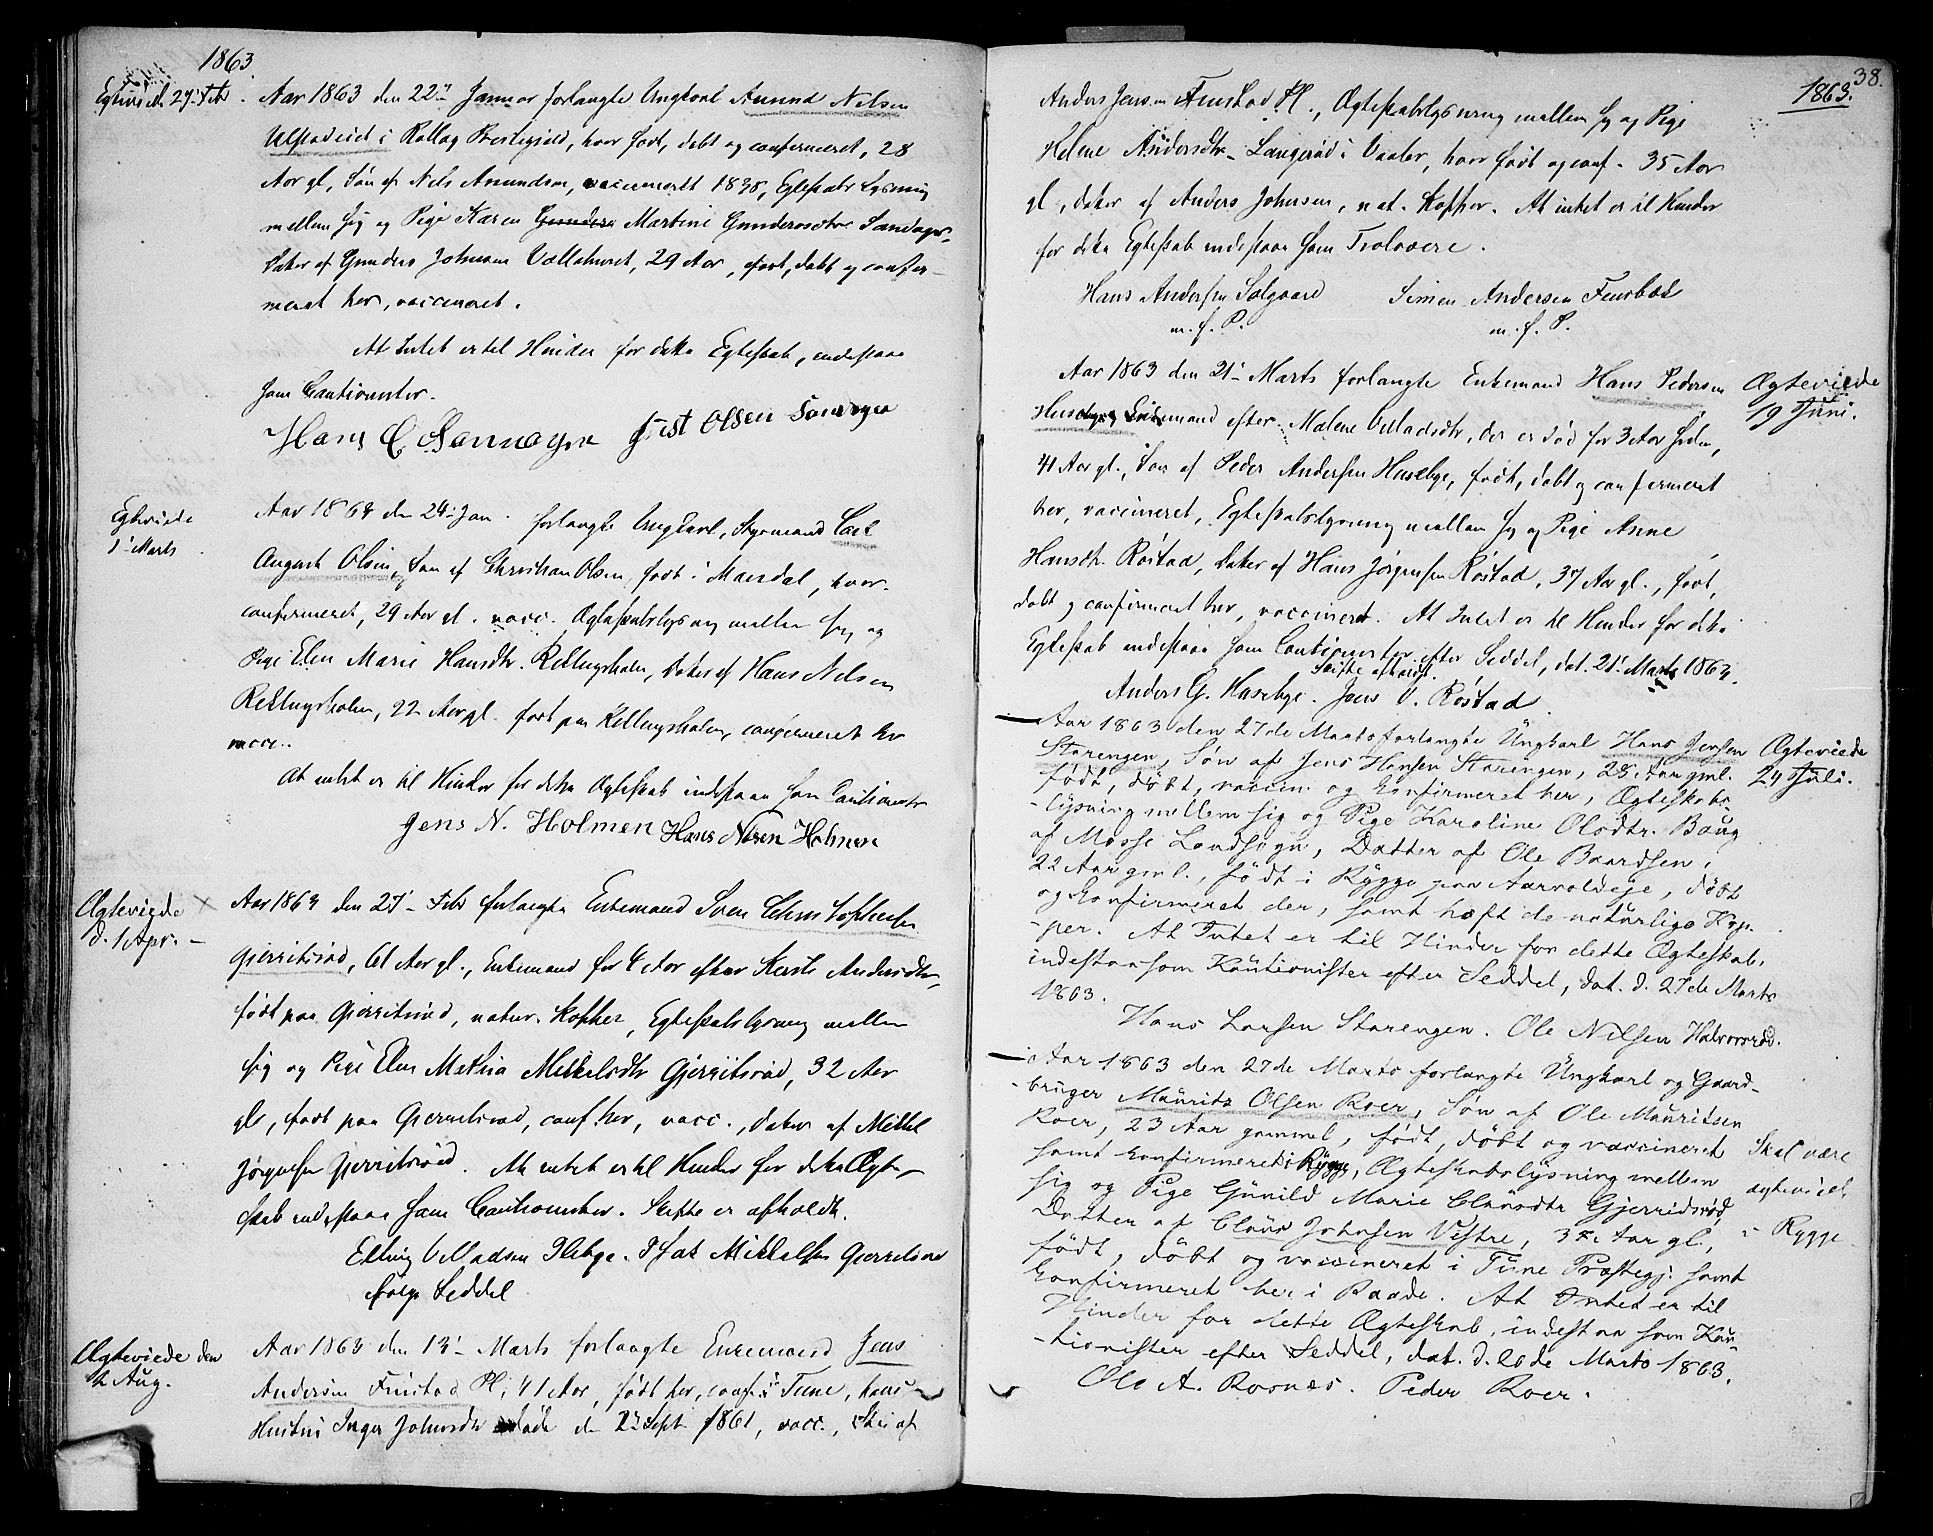 1863
Egteviede 27 Feb
Aar 1863 den 22n Januar forlangte Ungkarl Amund Nilsen
i Rollag Prestegield, hvor født, døbt og confirmeret, 28
Aar gl, Søn af Nils Amundsen, vaccineret 1838, Egteskabs Lysning
mellem sig og Pige Karen Gunders Martine Gundersdtr
Datter af Gunders Johnsen 29 Aar, født, døbt og confir-
meret her, vaccineret.
At Intet er til Hinder for dette Egteskab, indestaae
som Cautionister.
Hans C. Just Olsen
Egteviede
1' Marts
Aar 1863 den 24' Jan. forlangte Ungkarl, Styrmand Carl
August Olsen, Søn af Christian Olsen, født i Mandal, hvor
confirmeret, 29 Aar gl. vacc. Ægteskabslysning mellem sig og
Pige Elen Marie Hansdtr. Rellingsholm, Datter af Hans Nilsen
Rellingsholm, 22 Aar gl. født paa Rellingsholm, confirmeret her
vacc.
At intet er til Hinder for dette Ægteskab indestaae som Cautionister
Jens N. Holmen Hans Nilsen Holmen
Ægteviede
d. 1 Apr.
Aar 1863 den 27' Feb forlangte Enkemand Sven
Gjerritsrød, 61 Aar gl., Enkemand for 4 Aar efter Andersdtr,
født paa Gjerritsrød, natur. Kopper, Egteskabslysning mellem
sig og Pige Elen Mathia Mikkelsdtr Gjerritsrød, 32 Aar
gl, født paa Gjerritsrød, conf. her, vacc., Datter af Mikkel
Jørgensen Gjerritsrød. At intet er til Hinder for dette Ægte-
skab indestaae som Cautionister. Skifte er afholdt.
Elling Mikkelsen Gjerritsrød
ifølge Seddel
Ægteviede den
2 Aug.
Aar 1863 den 13' Marts forlangte Enkemand Jens
Andersen Finstad Pl, 41 Aar, født her, conf i Tune, hans
Hustru Inger Johnsdtr døde den 2 Sept 1861, vacc., Søn af
38.
1863.
Anders Jensen Finstad Pl., Ægteskabslysning mellem sig og Pige
Helene Andersdtr Langerød i Vaaler, hvor født og conf. 35 Aar
gl, Datter af Anders Johnsen, nat. Kopper. At intet er til Hinder
for dette Egteskab indestaae som Trolovere.
Hans Andersen Solgaard Simen Andersen
m. f. P. m. f. P.
Ægteviede
19 Juni.
Aar 1863 den 21' Marts forlangte Enkemand Hans Pedersen
Husebye, Enkemand efter Malene der er død for 3 Aar siden,
41 Aar gl., Søn af Peder Andersen Husebye, født, døbt og confirmeret
her, vaccineret, Egteskabslysning mellem sig og Pige Anne
Hansdtr. Røstad, Datter af Hans Jørgensen Røstad, 37 Aar gl., født,
døbt og confirmeret her, vaccineret. At Intet er til Hinder for dette
Egteskab indestaae som Cautionister efter Seddel, dat. 21' Marts 1863.
Skifte afholdt.
Anders G. Husebye. Jens O. Røstad.
Ægteviede
24 Juli.
Aar 1863 den 27de Marts forlangte Ungkarl Hans Jensen
Starengen, Søn af Jens Hansen Starengen, 28 Aar gml.
født, døbt, vaccin. og konfirmeret her, Ægteskabs-
-lysning mellem sig og Pige Karoline Olsdtr. Baug
af Mosse Landsogn, Datter af Ole Baardsen,
22 Aar gml., født i Rygge paa Aarvoldeje, døbt
og konfirmeret der, samt haft de naturlige Kop-
-per. At Intet er til Hinder for dette Ægteskab,
indestaa som Kautionister efter Seddel, dat. d. 27de Marts
1863.
Hans Larsen Starengen. Ole Nilsen Halvorsrød.
Aar 1863 den 27de Marts forlangte Ungkarl og Gaard-
-bruger Mauritz Olsen Roer, Søn af Ole Mauritsen
Roer, 23 Aar gammel, født, døbt og vaccineret
samt konfirmeret i Rygge, Ægteskabslysning mellem
sig og Pige Gunild Marie Clausdtr Gjerridsrød,
Datter af Claus Johnsen Vestre, Aar gl.,
født, døbt og vaccineret i Tune Præstegj. samt
konfirmeret her i Raade. At Intet er til
Hinder for dette Ægteskab, indestaa som Kau-
-tionister efter Seddel, dat. d. 26de Marts 1863.
Ole A. Rosnæs. Peder Roer.
Skal være
ægteviet
i Rygge